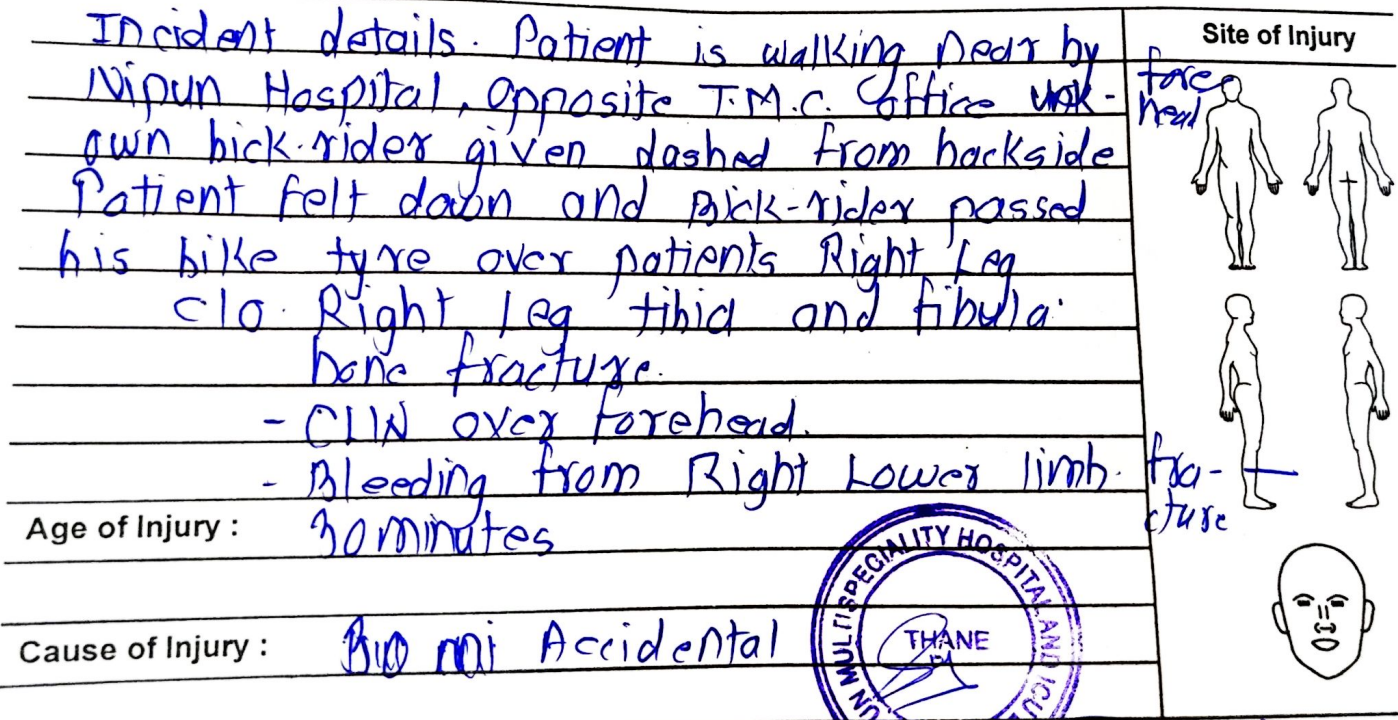 Incident details. Patient is walking near by
Nipun Hospital, opposite T.M.C. office unk-
own bick-rider given dashed from backside
Patient felt down and Bick-rider passed
his bike tyre over patients Right Leg
c/o. Right Leg tibia and fibula
bone fracture.
- CLW over forehead.
- Bleeding from Right Lower limb.
Age of Injury : 30 minutes
Cause of Injury : Accidental
Site of Injury
fore
head
fra-
cture
MULTISPECIALITY HOSPITAL AND ICU
THANE